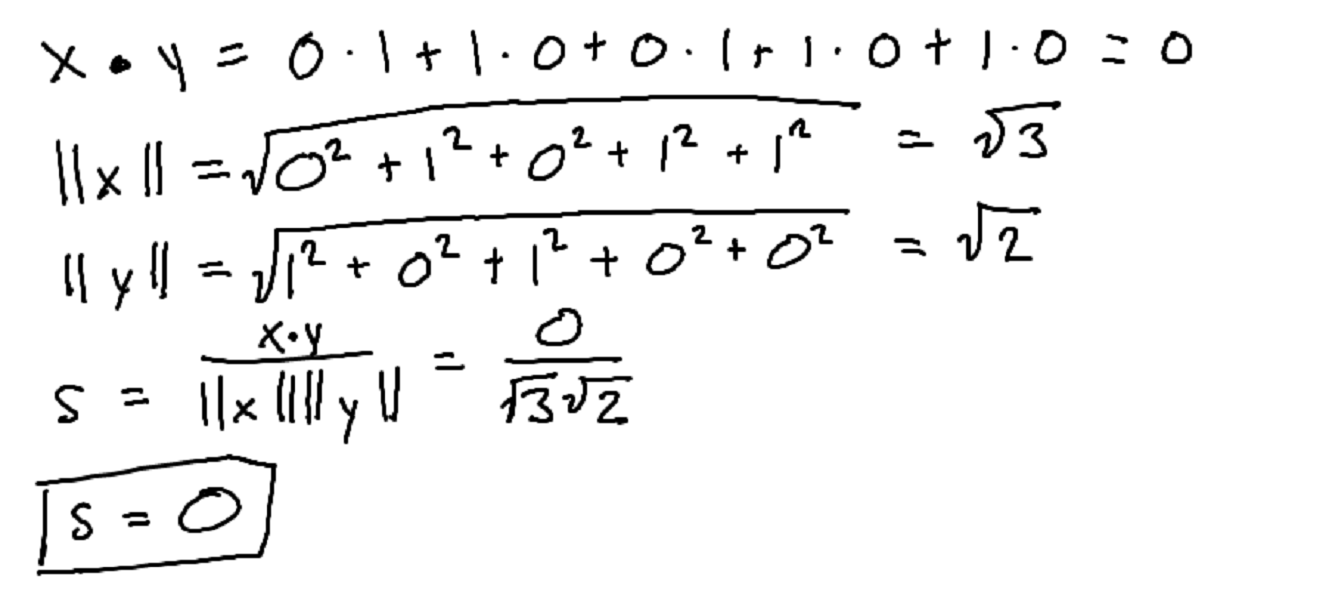 x • y = 0 · 1 + 1 · 0 + 0 · 1 + 1 · 0 + 1 · 0 = 0
||x|| = √(0² + 1² + 0² + 1² + 1²) = √3
||y|| = √(1² + 0² + 1² + 0² + 0²) = √2
s = x·y / ||x||||y|| = 0 / √3√2
s = 0